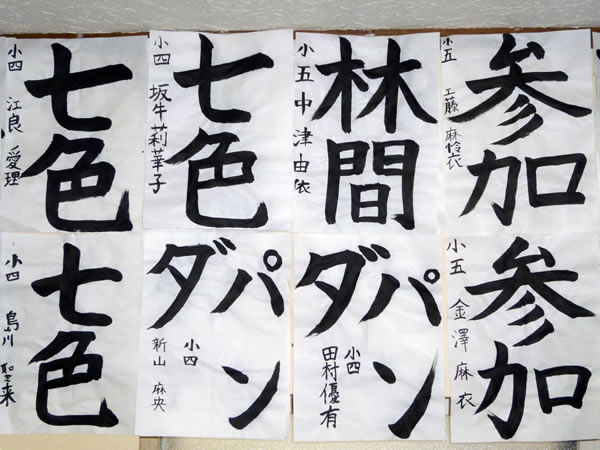 七色
小四 江良 愛理
七色
小四 坂牛莉華子
林間
小五 中津由依
参加
小五 工藤 麻怜衣
七色
小四 島川 聖来
パン
ダ
小四
新山 麻央
パン
ダ
小四
田村優有
参加
小五 金澤麻衣